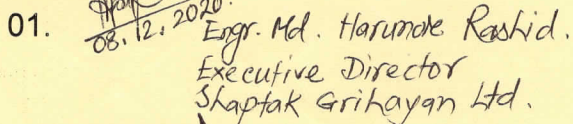 01.
08.12.2020
Engr. Md. Harunor Rashid.
Executive Director
Shaptak Grihayan Ltd.